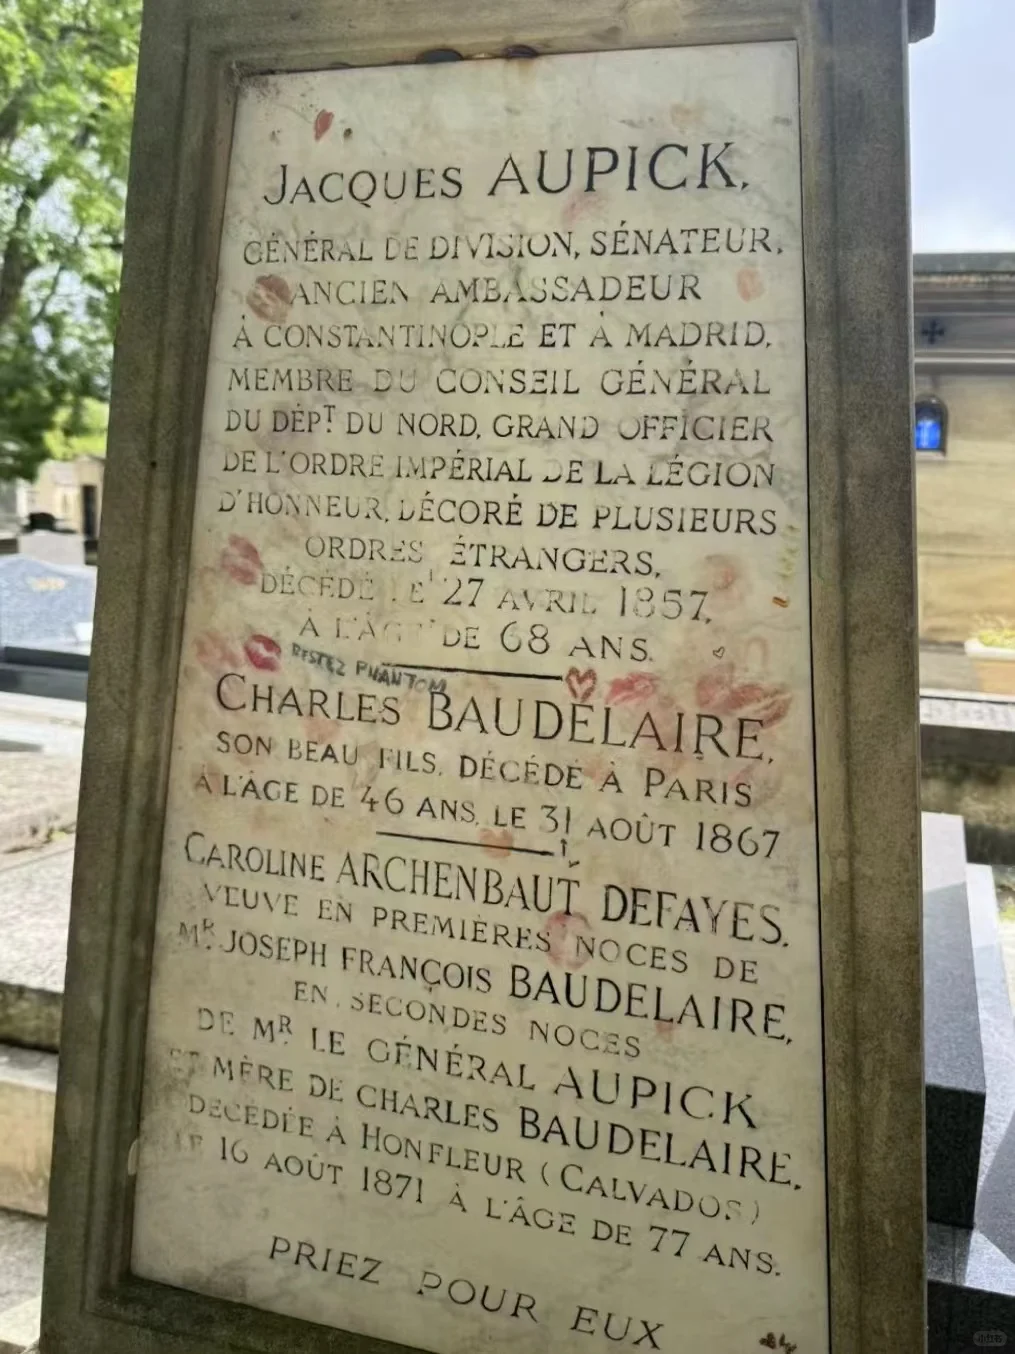 JACQUES AUPICK,
GÉNÉRAL DE DIVISION, SÉNATEUR,
ANCIEN AMBASSADEUR
À CONSTANTINOPLE ET À MADRID,
MEMBRE DU CONSEIL GÉNÉRAL
DU DÉPT DU NORD, GRAND OFFICIER
DE L'ORDRE IMPÉRIAL DE LA LÉGION
D'HONNEUR, DÉCORÉ DE PLUSIEURS
ORDRES ÉTRANGERS,
DÉCÉDÉ LE 27 AVRIL 1857,
À L'ÂGE DE 68 ANS.
RESTEZ PHANTOM
CHARLES BAUDELAIRE,
SON BEAU FILS, DÉCÉDÉ À PARIS
À L'ÂGE DE 46 ANS, LE 31 AOÛT 1867
CAROLINE ARCHENBAUT DEFAYES,
VEUVE EN PREMIÈRES NOCES DE
MR. JOSEPH FRANÇOIS BAUDELAIRE,
EN SECONDES NOCES
DE MR LE GÉNÉRAL AUPICK
ET MÈRE DE CHARLES BAUDELAIRE,
DÉCÉDÉE À HONFLEUR (CALVADOS)
LE 16 AOÛT 1871 À L'ÂGE DE 77 ANS.
PRIEZ POUR EUX
小红书